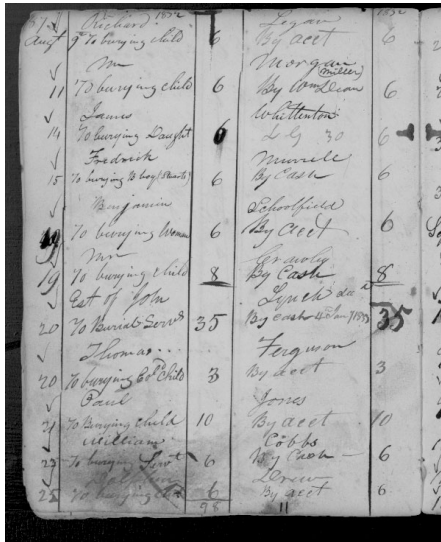 Richard 1852 Logan 1852
Augt 9th To burying child 6 By acct 6
Mr Morgan
11 To burying child 6 By Com 6
(Miller)
James Whittenton
14 To burying Daught 6 L G 30 6
Fredrick Murrell
15 To burying B boy (Stuarts) 6 By Cash 6
Benjamin Schoolfield
To burying Woman 6 By acct 6
Mr Crawley
19 To burying child 8 By Cash 8
Est of John Lynch decd
20 To Burial Servs 35 By cash 4 Jany 1853 35
Thomas Ferguson
20 To burying Cold Child 3 By acct 3
Paul Jones
21 To Burying Child 10 By acct 10
William Cobbs
23 To burying Servt 6 By Cash 6
Drew
25 To burying 6 By acct 6
98 11